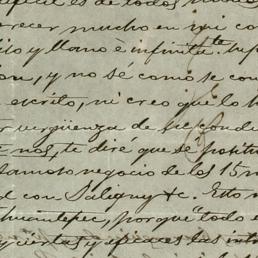 es de todos modos
recer mucho en mi con
ito y llano e infinita.te
on, y no sé como se con
escrito, ni creo que lo h
verguenza de
nos, te diré que se
tamoto negocio de los 15 m
d con Saligny &c. Esto
huantepec, porque "todo e
y ciertas y las int